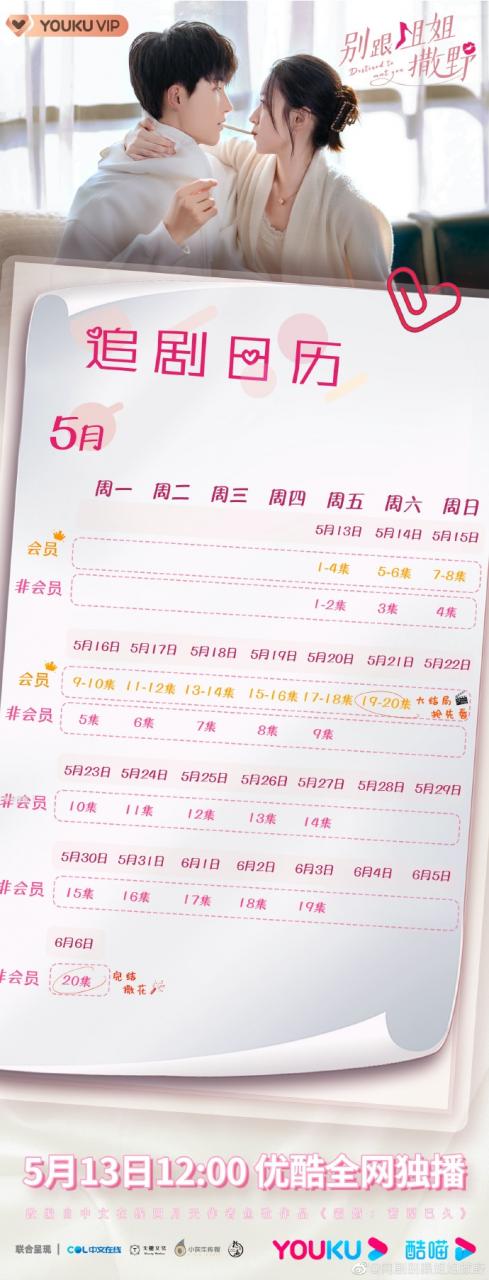 YOUKU VIP
别跟姐姐
撒野
Destined to
meet you
追剧日历
5月
周一 周二 周三 周四 周五 周六 周日
5月13日 5月14日 5月15日
会员 1-4集 5-6集 7-8集
非会员 1-2集 3集 4集
5月16日 5月17日 5月18日 5月19日 5月20日 5月21日 5月22日
会员 9-10集 11-12集 13-14集 15-16集 17-18集 19-20集 大结局
抢先看
非会员 5集 6集 7集 8集 9集
5月23日 5月24日 5月25日 5月26日 5月27日 5月28日 5月29日
非会员 10集 11集 12集 13集 14集
5月30日 5月31日 6月1日 6月2日 6月3日 6月4日 6月5日
非会员 15集 16集 17集 18集 19集
6月6日
非会员 20集 完结
撒花
5月13日12:00 优酷全网独播
联合呈现 COL中文在线 YOUKU 酷喵